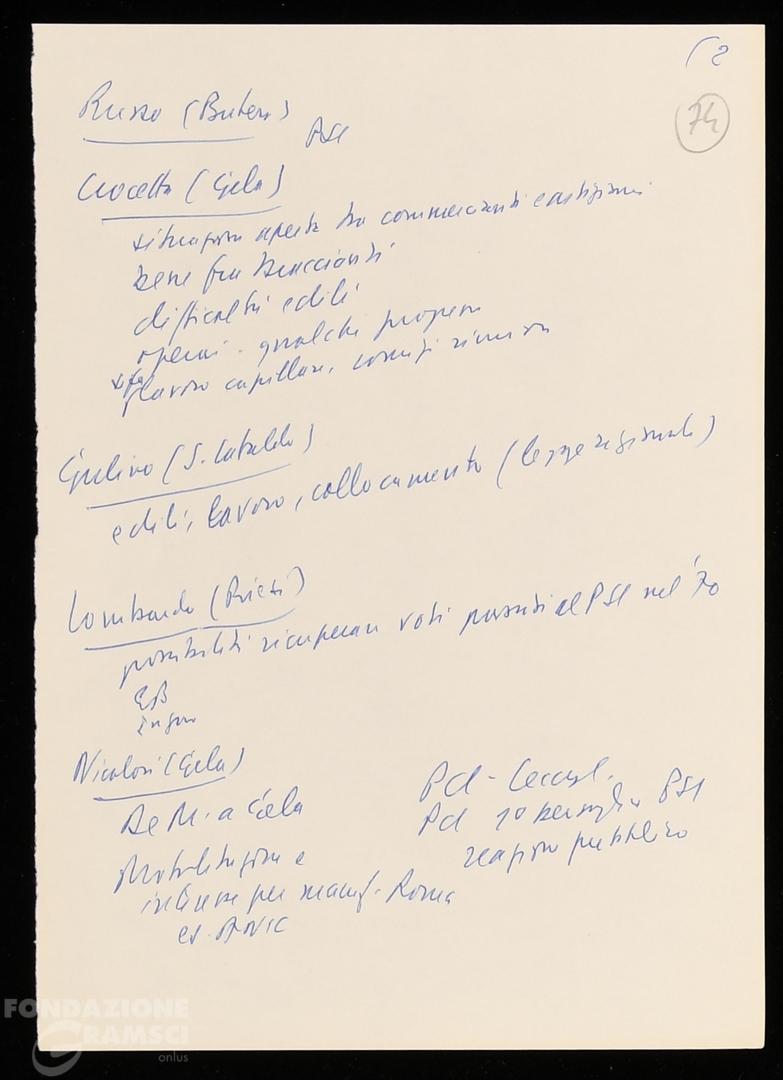 (2
74
Russo (Butera)
PSI
Crocetta (Gela)
situazione aperta tra commercianti e artigiani
bene fra braccianti
difficoltà edili
operai - qualche progresso
lavoro capillare, comizi rionali
Giuliano (S. Cataldo)
edili, lavoro, collocamento (legge regionale)
Lombardo (Riesi)
possibilità recuperare voti passati al PSI nel '70
EB
Nicolosi (Gela)
De M. a Gela
Mobilitazione e
interesse per manif. Roma
es. ANIC
PCI -
PCI 1° bersaglio PSI
reazione pubblico
FONDAZIONE
GRAMSCI
onlus